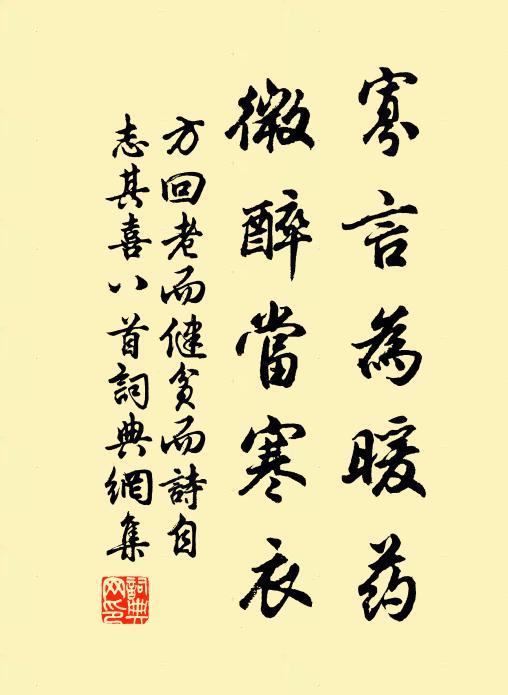 寡言為暖药
微醉當寒衣
方回老而健貧而詩自
志其喜八首詞典網集
詞典网印